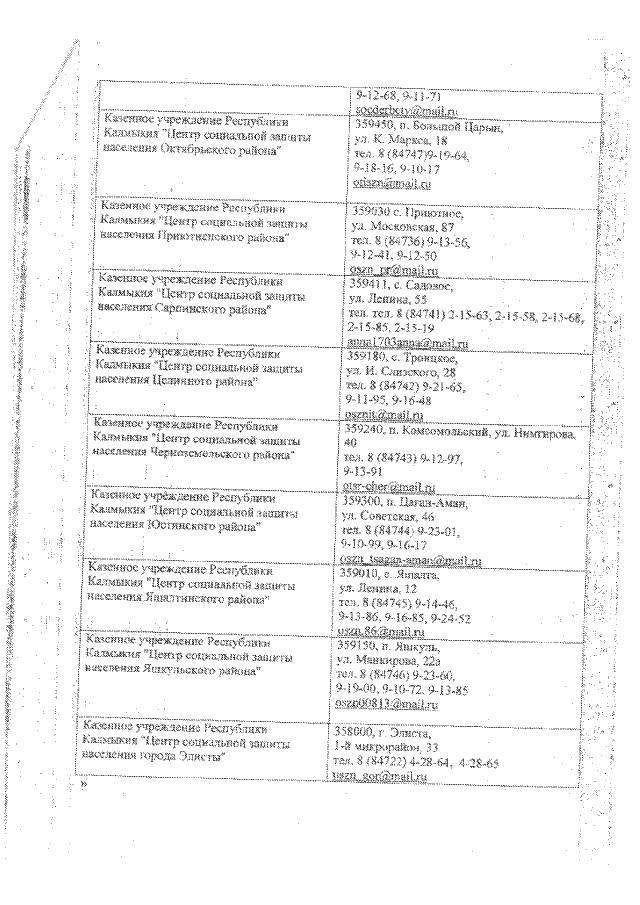 9-12-68, 9-11-71
socderbety@mail.ru
Казенное учреждение Республики
Калмыкия "Центр социальной защиты
населения Октябрьского района"
359450, п. Большой Царын,
ул. К. Маркса, 18
тел. 8 (84747)9-19-64,
9-18-16, 9-10-17
otiszn@mail.ru
Казенное учреждение Республики
Калмыкия "Центр социальной защиты
населения Приютненского района"
359030 с. Приютное,
ул. Московская, 87
тел. 8 (84736) 9-13-56,
9-12-41, 9-12-50
oszn_pr@mail.ru
Казенное учреждение Республики
Калмыкия "Центр социальной защиты
населения Сарпинского района"
359411, с. Садовое,
ул. Ленина, 55
тел. тел. 8 (84741) 2-15-63, 2-15-58, 2-15-68,
2-15-85, 2-15-19
anna1703anna@mail.ru
Казенное учреждение Республики
Калмыкия "Центр социальной защиты
населения Целинного района"
359180, с. Троицкое,
ул. И. Слизского, 28
тел. 8 (84742) 9-21-65,
9-11-95, 9-16-48
osznit@mail.ru
Казенное учреждение Республики
Калмыкия "Центр социальной защиты
населения Черноземельского района"
359240, п. Комсомольский, ул. Нимгирова,
40
тел. 8 (84743) 9-12-97,
9-13-91
otsr-cher@mail.ru
Казенное учреждение Республики
Калмыкия "Центр социальной защиты
населения Юстинского района"
359300, п. Цаган-Аман,
ул. Советская, 46
тел. 8 (84744) 9-23-01,
9-10-99, 9-16-17
oszn_tsagan-aman@mail.ru
Казенное учреждение Республики
Калмыкия "Центр социальной защиты
населения Яшалтинского района"
359010, с. Яшалта,
ул. Ленина, 12
тел. 8 (84745) 9-14-46,
9-13-86, 9-16-85, 9-24-52
oszn.86@mail.ru
Казенное учреждение Республики
Калмыкия "Центр социальной защиты
населения Яшкульского района"
359150, п. Яшкуль,
ул. Манкирова, 22а
тел. 8 (84746) 9-23-60,
9-19-00, 9-10-72, 9-13-85
oszn00813@mail.ru
Казенное учреждение Республики
Калмыкия "Центр социальной защиты
населения города Элисты"
358000, г. Элиста,
1-й микрорайон, 33
тел. 8 (84722) 4-28-64, 4-28-65
uszn_gor@mail.ru
»